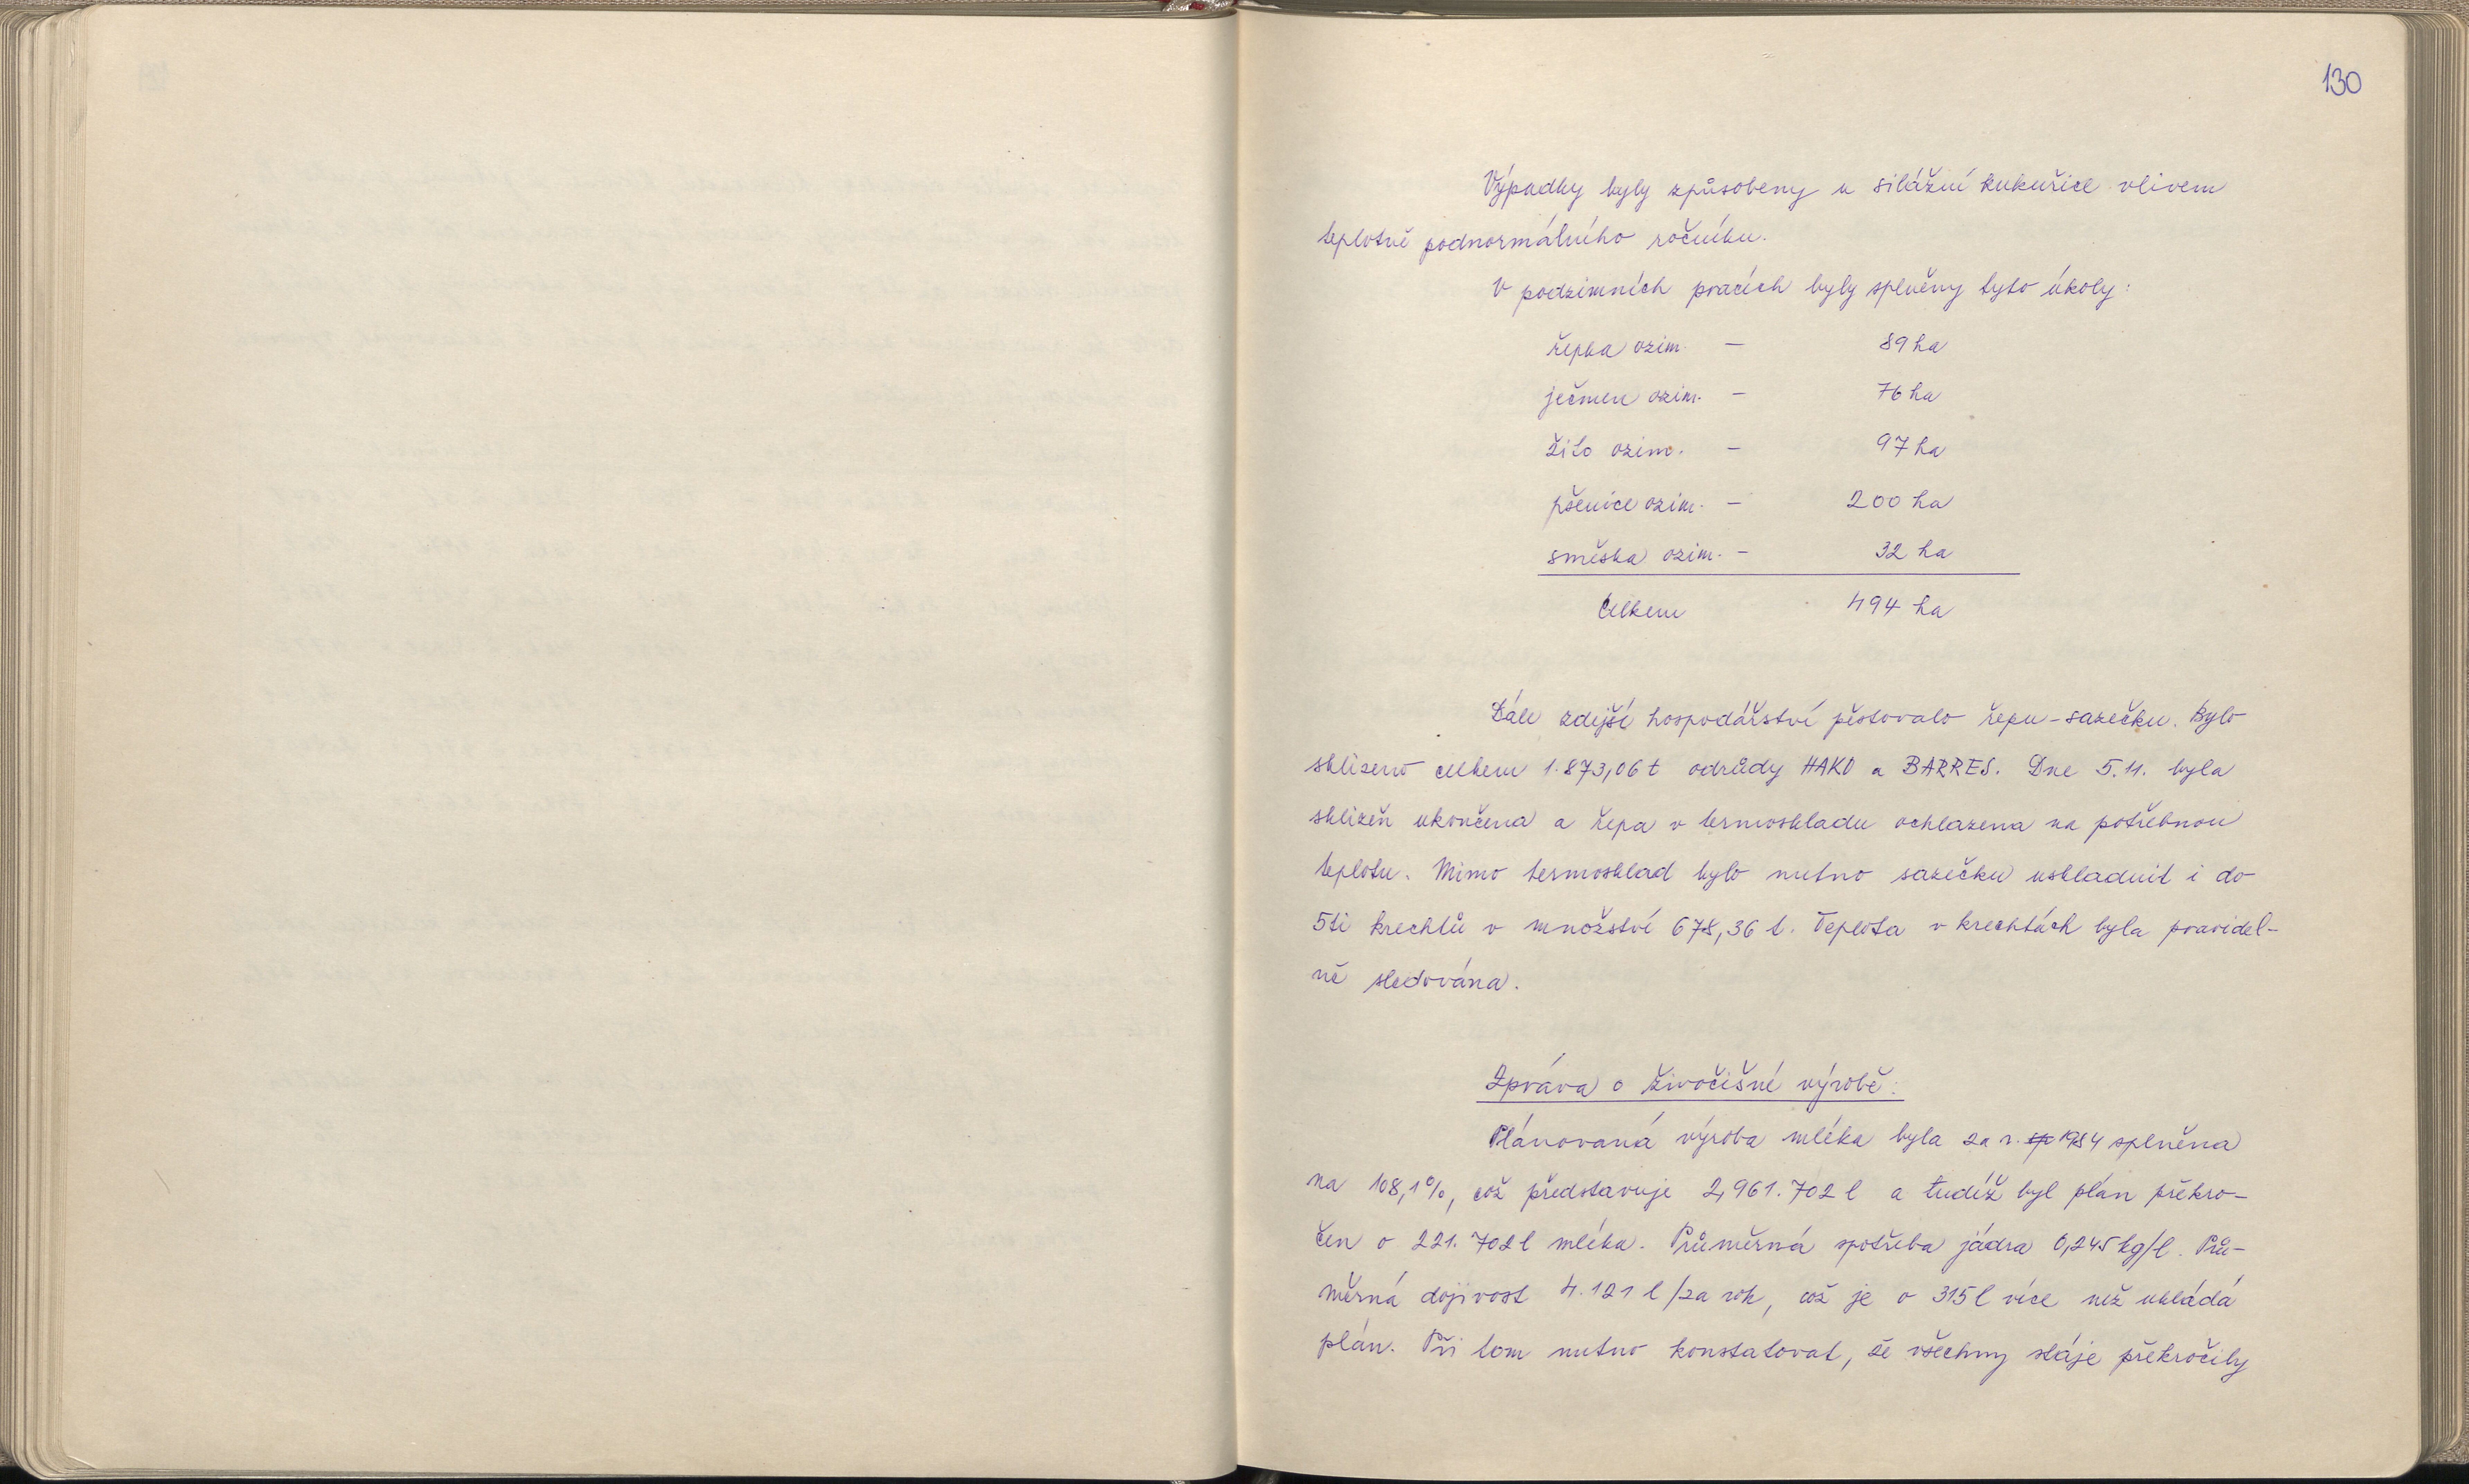 130
Výpadky byly způsobeny u silážní kukuřice vlivem
teplotně podnormálního ročníku.
V podzimních pracích byly splněny tyto úkoly:
řepka ozim. — 89 ha
ječmen ozim. — 76 ha
žito ozim. — 97 ha
pšenice ozim. — 200 ha
směska ozim. — 32 ha
Celkem 494 ha
Dále zdejší hospodářství pěstovalo řepu-sazečku. Bylo
sklizeno celkem 1.873,06 t odrůdy HAKO a BARRES. Dne 5.11. byla
sklizeň ukončena a řepa v termoskladu ochlazena na potřebnou
teplotu. Mimo termosklad bylo nutno sazečku uskladnit i do
5ti krechtů v množství 678,36 t. Teplota v krechtách byla pravidel-
ně sledována.
Zpráva o živočišné výrobě:
Plánovaná výroba mléka byla za r. sp 1984 splněna
na 108,1%, což představuje 2,961.702 l a tudíž byl plán překro-
čen o 221.702 l mléka. Průměrná spotřeba jádra 0,245 kg/l. Prů-
měrná dojivost 4.121 l/za rok, což je o 315 l více než ukládá
plán. Při tom nutno konstatovat, že všechny stáje překročily